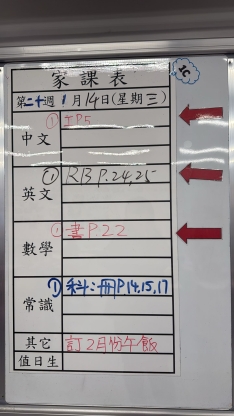 1C
家課表
第二十週 1月14日(星期三)
中文 ① 工P5
英文 ① RB P.24,25
數學 ① 書P.22
常識 ① 科:冊P14,15,17
其它 訂2月份午飯
值日生